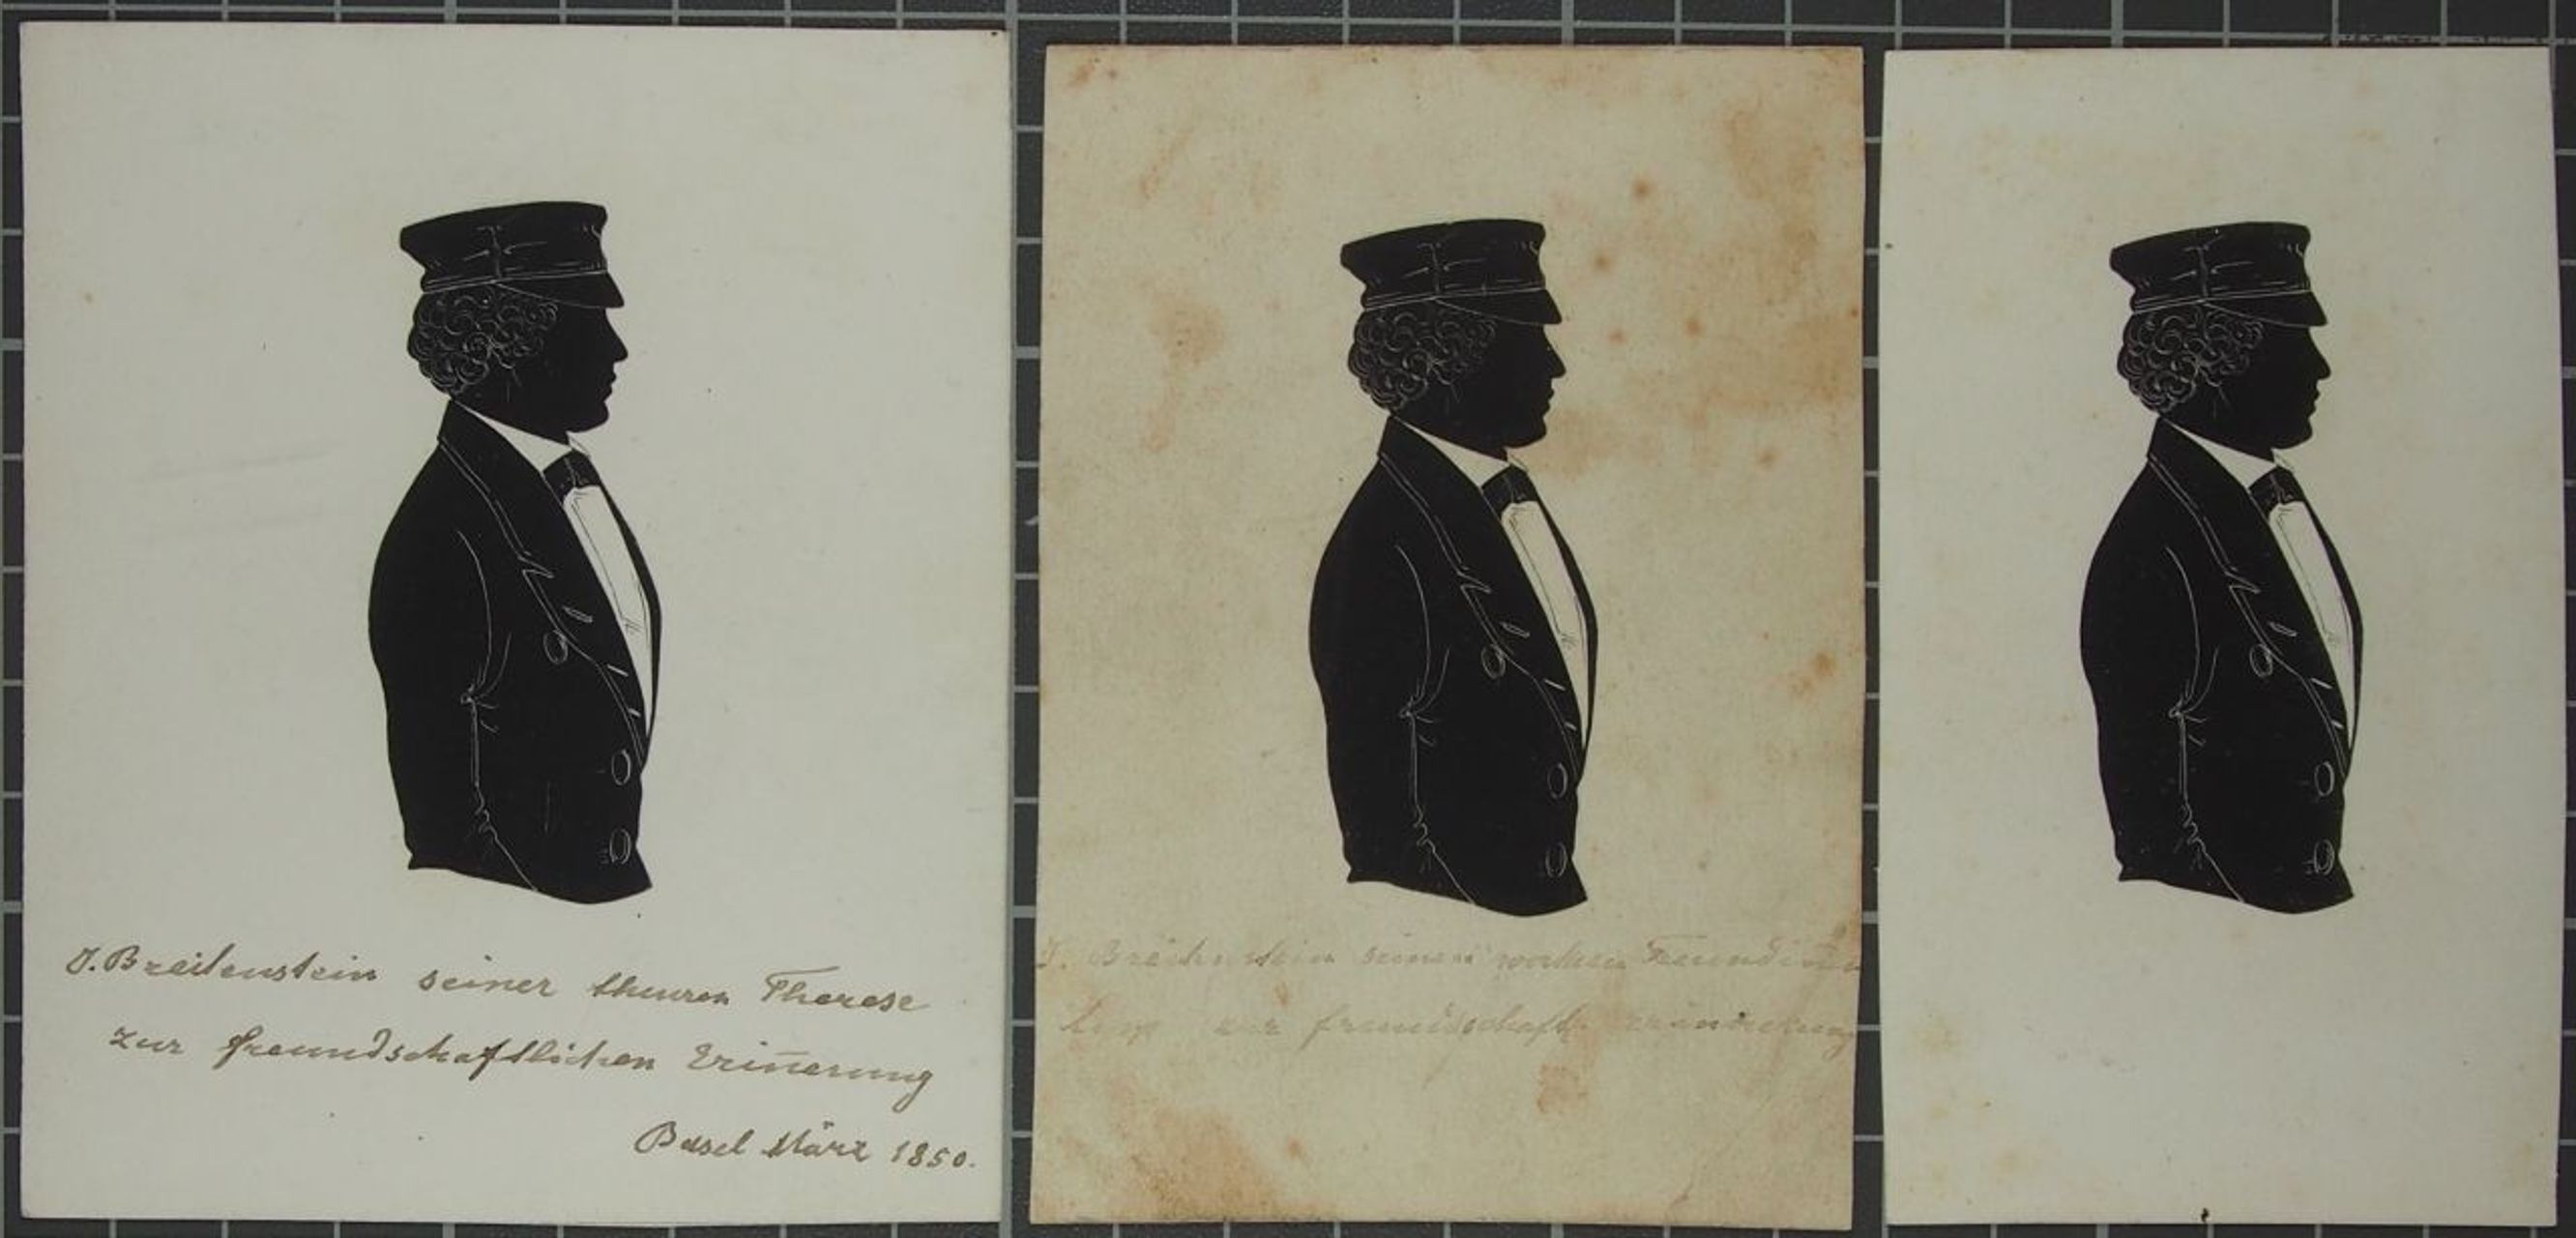 J. Breitenstein seiner theuren Therese
zur freundschaftlichen Erin̄erung
Basel März 1850.
J. Breitenstein seinen
zur freundschaftl. Erinnerung